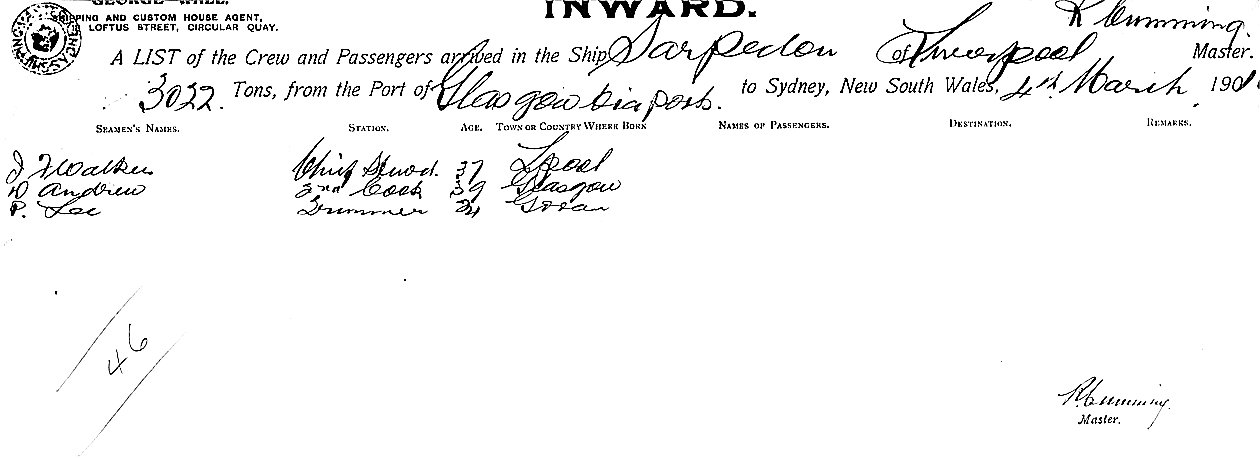 INWARD.
SHIPPING AND CUSTOM HOUSE AGENT,
LOFTUS STREET, CIRCULAR QUAY.
R Cumming
A LIST of the Crew and Passengers arrived in the Ship Sarpedon of Liverpool Master.
3022 Tons, from the Port of Glasgow via ports. to Sydney, New South Wales, 4th March 1901
SEAMEN'S NAMES. STATION. AGE. TOWN OR COUNTRY WHERE BORN NAMES OF PASSENGERS. DESTINATION. REMARKS.
J Walker Chief Stwd. 37 Lpool
D Andrew 2nd Cook 39 Glasgow
P. Lee Trimmer 24 Govan
46
R. Cumming
Master.